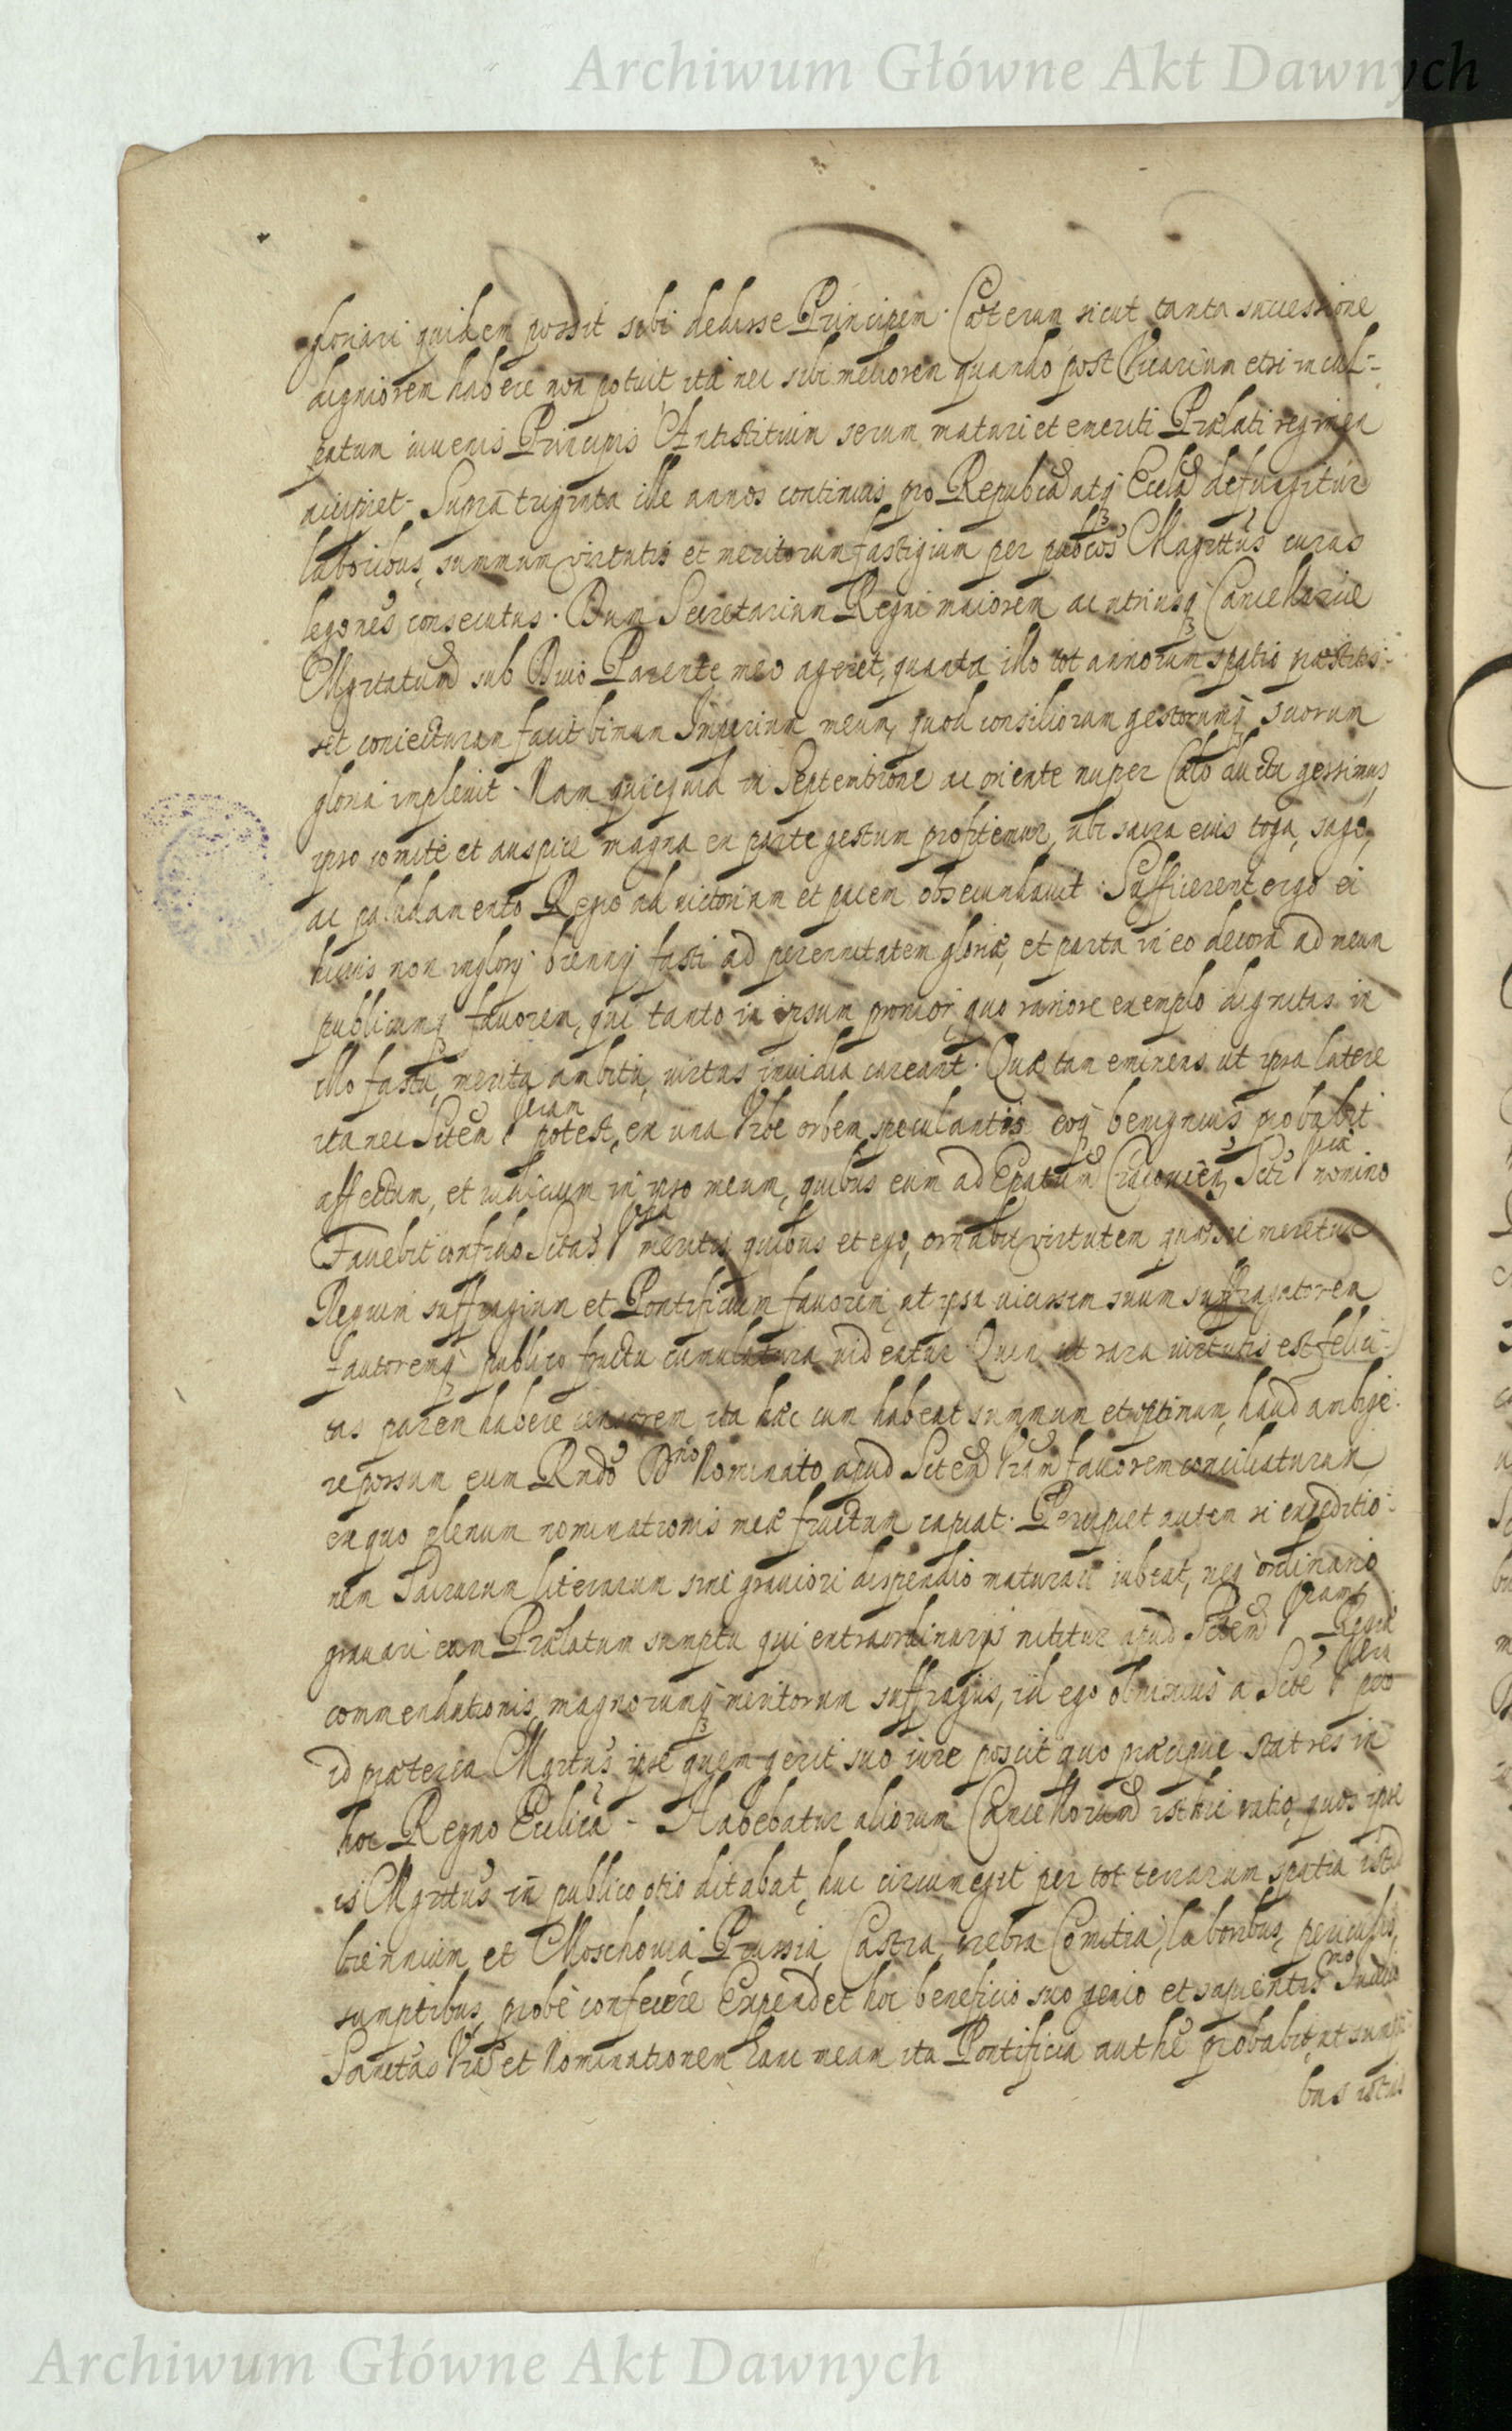 Archiwum Główne Akt Dawnych
gloriari quidem possit sibi dedisse Principem. Cæterum sicut tanta successione
digniorem habere non potuit, ita nec sibi meliorem quando post Vicarium etsi incul-
patum iuvenis Principis Antistitium serum maturi et emeriti Prælati regimen
accipiet. Supra triginta ille annos continuis pro Repubca atq Eccla defungitur
laboribus, summum virtutis et meritorum fastigium per Magrtus curas
consecutus. Dum Secretarium Regni maiorem ac utriusq Cancellariæ
Mgrtatum sub Divo Parente meo ageret, quanta illo tot annorum spatio præstitis-
set coniecturam facit bimum Imperium meum, quod consiliorum gestorumq suorum
gloria implevit. Nam quicquid in Septemtrione ac oriente nuper Cælo ductu gessimus,
ipso comite et auspice magna ex parte gestum profitemur, ubi sacra eius toga, sago,
ac paludamento Regio ad victoriam et pacem obsecundavit. Sufficerent ergo ei
huius non inglorij biennij fasti ad perennitatem gloriæ, et parta in eo decora ad meum
publicumq favorem, qui tanto in ipsum pronior, quo rariore exemplo dignitas in
illo fastu, merita ambitu, virtus invidia careant. Quæ tam eminens ut ipsa latere
ita nec Sctem Vram potest, ex una Vrbe orbem speculantis eoq benignius probabit
affectum, et iudicium in ipso meum, quibus eum ad Epatum Cracovien Scti Vræ nomino
Favebit confido Sctas Vra meritis quibus et ego, ornabit virtutem quæ sic meretur
Regum suffragium et Pontificium favorem, ut ipsa vicissim suum suffragatorem
fautoremq publico fructu cumulatura videatur. Quin ut rara virtutis est felici-
tas parem habere censorem, ita hæc cum habeat summum et optimum, haud ambige-
re possum eum Rndo Dno Nominato apud Sctem Vram favorem conciliaturam,
ex quo plenum nominationis meæ fructum capiat. Percipiet autem si expeditio-
nem Sacrarum literarum sine graviori dispendio maturari iubeat, neq ordinario
gravari eum Prælatum sumptu qui extraordinarijs nititur apud Sctem Vram Regiæ
commendationis, magnorumq meritorum suffragijs, id ego obnixius a Scte Vra peto
id præterea Mgrtus ipse quem gerit suo iure poscit quo præcipue stat res in
hoc Regno Ecclica. Habebatur aliorum Cancellorum isthic ratio, quos ipse
is Mgrtus in publico otio ditabat, huc circumegit per tot terrarum spatia istud
biennium, et Moschovia, Prussia, Castra, crebra Comitia, laboribus, periculis,
sumptibus, probe confecere. Expendet hoc beneficio suo genio et sapientissmo Iudicio
Sanctas Vra et Nominationem hanc meam ita Pontificia authe probabit, ut sumpti-
bus istius
Archiwum Główne Akt Dawnych